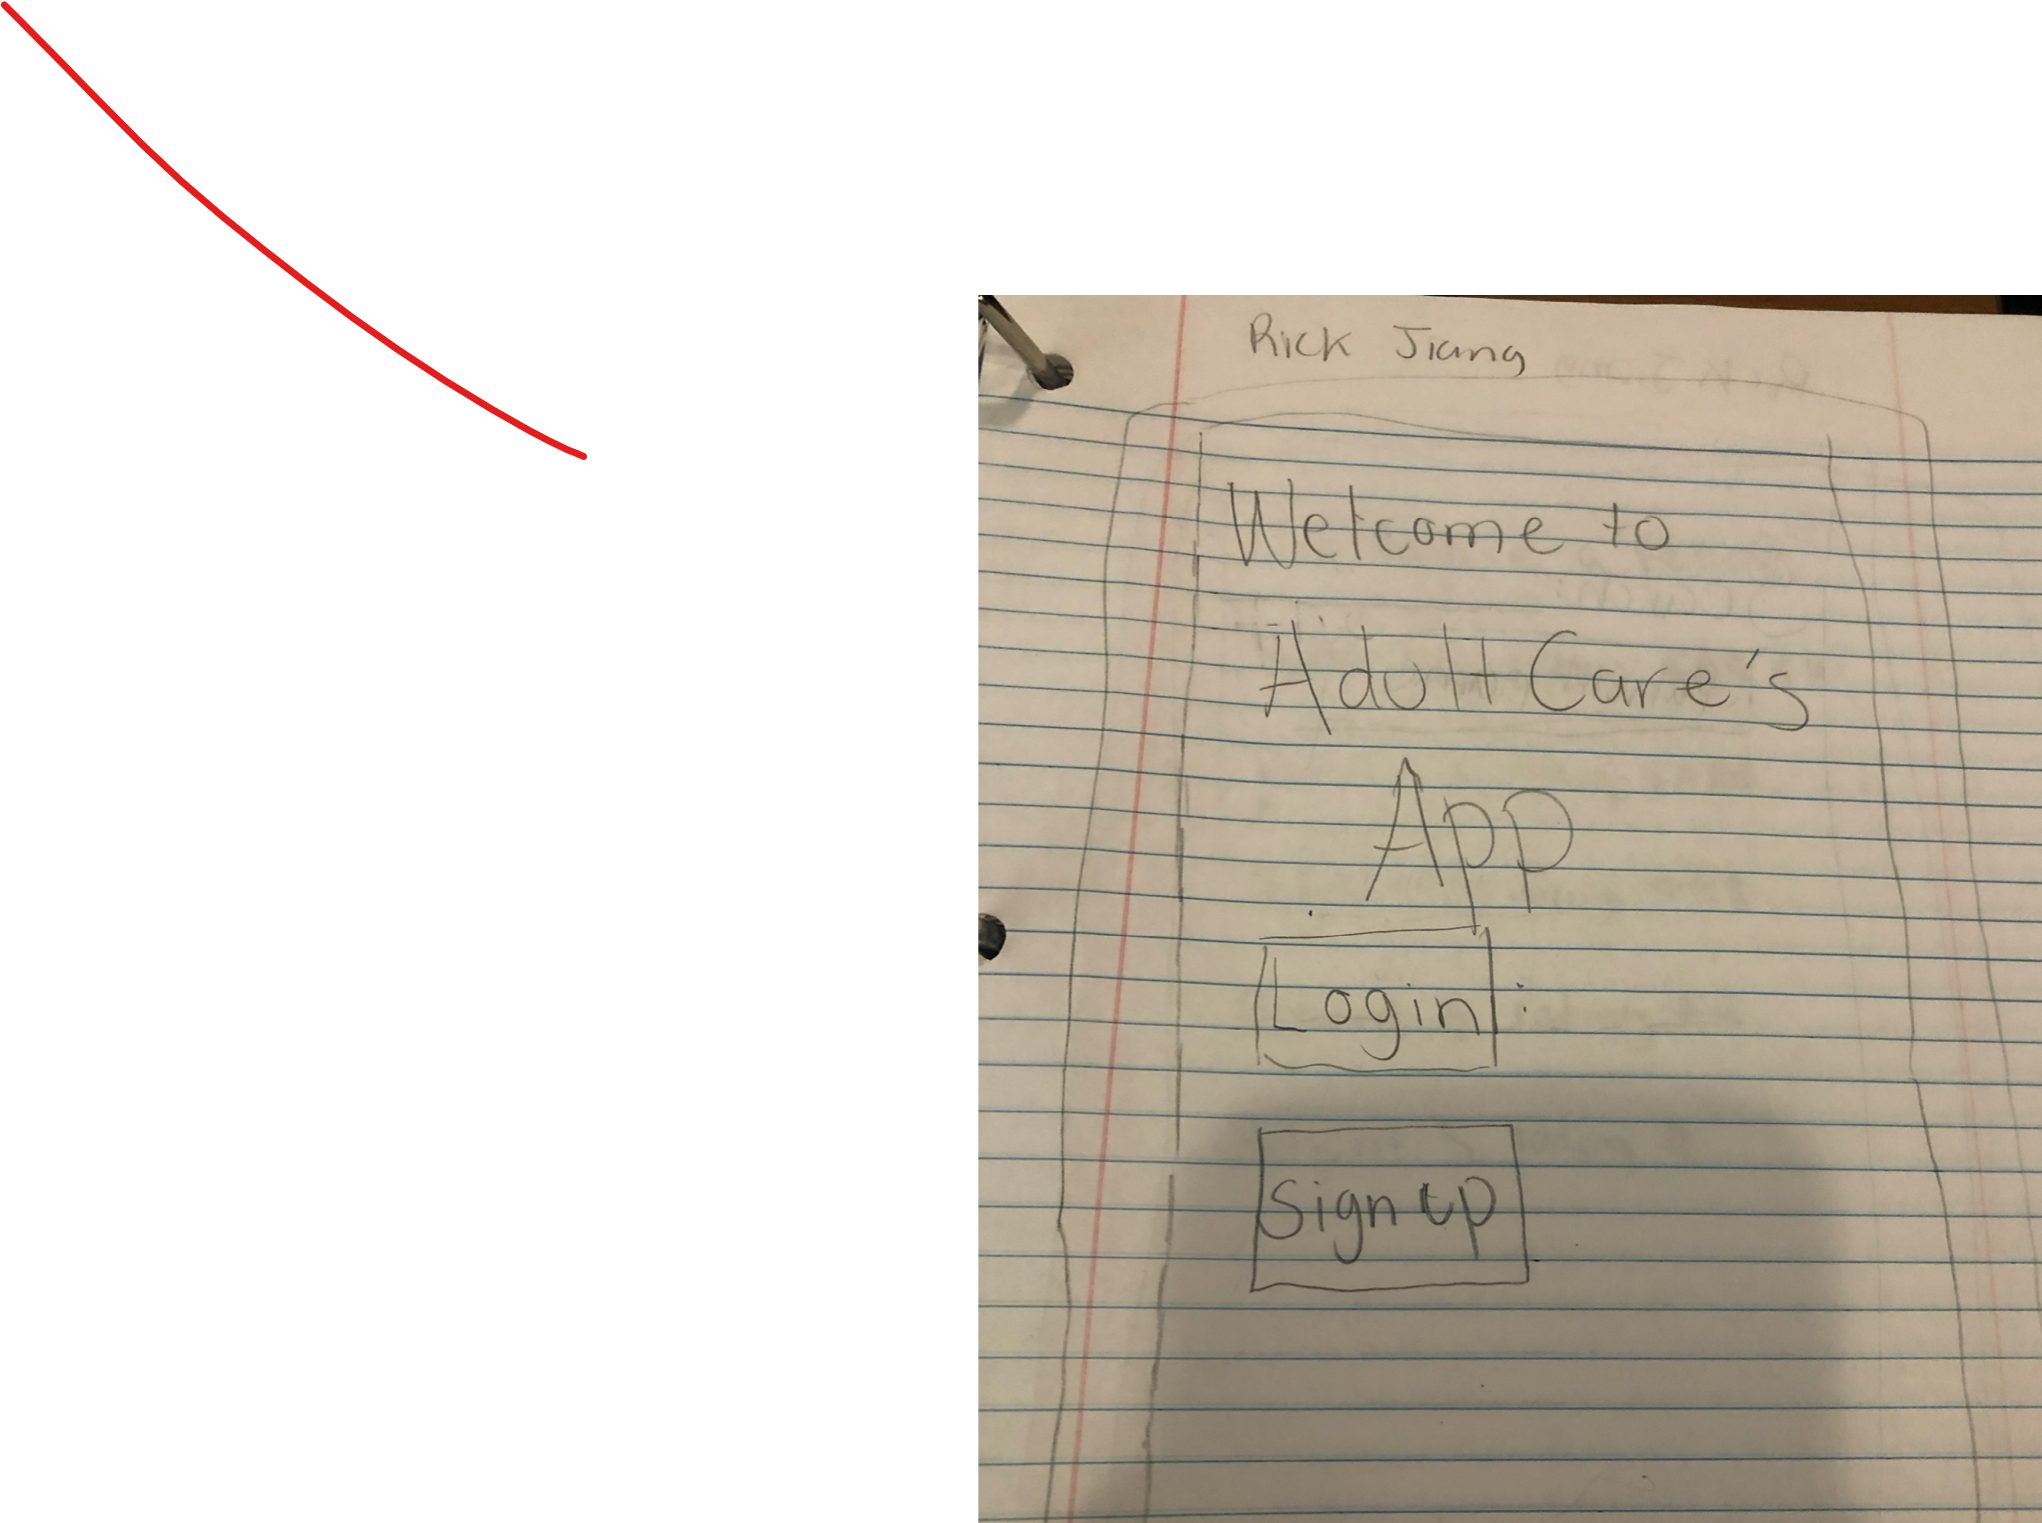 Rick Jiang
Welcome to
Adult Care's
App
Login
Sign up